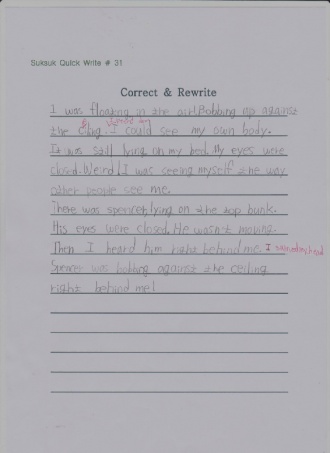 Suksuk Quick Write # 31
Correct & Rewrite
I was floating in the air! Bobbing up against
the I could see my own body.
It was still lying on my bed. My eyes were
closed. Weird! I was seeing myself the way
other people see me.
There was spencer, lying on the top bunk.
His eyes were closed. He wasn't moving.
Then I heard him right behind me. I
Spencer was bobbing against the ceiling
right behind me!